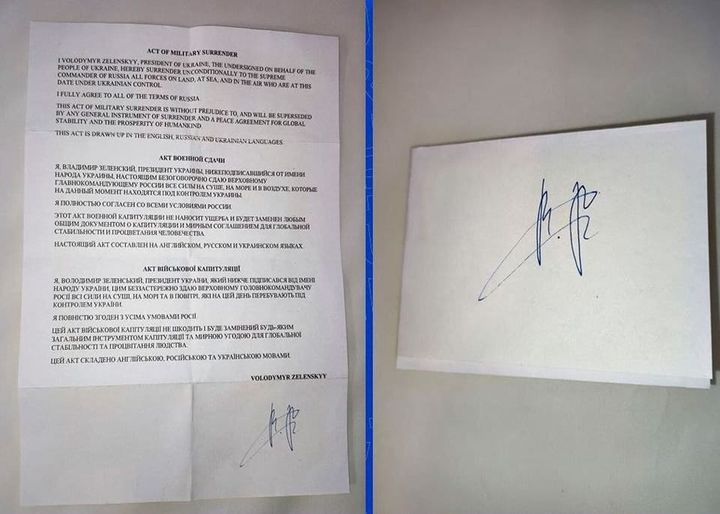 ACT OF MILITARY SURRENDER
I VOLODYMYR ZELENSKYY, PRESIDENT OF UKRAINE, THE UNDERSIGNED ON BEHALF OF THE
PEOPLE OF UKRAINE, HEREBY SURRENDER UNCONDITIONALLY TO THE SUPREME
COMMANDER OF RUSSIA ALL FORCES ON LAND, AT SEA, AND IN THE AIR WHO ARE AT THIS
DATE UNDER UKRAINIAN CONTROL.
I FULLY AGREE TO ALL OF THE TERMS OF RUSSIA.
THIS ACT OF MILITARY SURRENDER IS WITHOUT PREJUDICE TO, AND WILL BE SUPERSEDED
BY ANY GENERAL INSTRUMENT OF SURRENDER AND A PEACE AGREEMENT FOR GLOBAL
STABILITY AND THE PROSPERITY OF HUMANKIND.
THIS ACT IS DRAWN UP IN THE ENGLISH, RUSSIAN AND UKRAINIAN LANGUAGES.
АКТ ВОЕННОЙ СДАЧИ
Я, ВЛАДИМИР ЗЕЛЕНСКИЙ, ПРЕЗИДЕНТ УКРАИНЫ, НИЖЕПОДПИСАВШИЙСЯ ОТ ИМЕНИ
НАРОДА УКРАИНЫ, НАСТОЯЩИМ БЕЗОГОВОРОЧНО СДАЮ ВЕРХОВНОМУ
ГЛАВНОКОМАНДУЮЩЕМУ РОССИИ ВСЕ СИЛЫ НА СУШЕ, НА МОРЕ И В ВОЗДУХЕ, КОТОРЫЕ
НА ДАННЫЙ МОМЕНТ НАХОДЯТСЯ ПОД КОНТРОЛЕМ УКРАИНЫ.
Я ПОЛНОСТЬЮ СОГЛАСЕН СО ВСЕМИ УСЛОВИЯМИ РОССИИ.
ЭТОТ АКТ ВОЕННОЙ КАПИТУЛЯЦИИ НЕ НАНОСИТ УЩЕРБА И БУДЕТ ЗАМЕНЕН ЛЮБЫМ
ОБЩИМ ДОКУМЕНТОМ О КАПИТУЛЯЦИИ И МИРНЫМ СОГЛАШЕНИЕМ ДЛЯ ГЛОБАЛЬНОЙ
СТАБИЛЬНОСТИ И ПРОЦВЕТАНИЯ ЧЕЛОВЕЧЕСТВА.
НАСТОЯЩИЙ АКТ СОСТАВЛЕН НА АНГЛИЙСКОМ, РУССКОМ И УКРАИНСКОМ ЯЗЫКАХ.
АКТ ВІЙСЬКОВОЇ КАПІТУЛЯЦІЇ
Я, ВОЛОДИМИР ЗЕЛЕНСЬКИЙ, ПРЕЗИДЕНТ УКРАЇНИ, ЯКИЙ НИЖЧЕ ПІДПИСАВСЯ ВІД ІМЕНІ
НАРОДУ УКРАЇНИ, ЦИМ БЕЗЗАСТЕРЕЖНО ЗДАЮ ВЕРХОВНОМУ ГОЛОВНОКОМАНДУВАЧУ
РОСІЇ ВСІ СИЛИ НА СУШІ, НА МОРІ ТА В ПОВІТРІ, ЯКІ НА ЦЕЙ ДЕНЬ ПЕРЕБУВАЮТЬ ПІД
КОНТРОЛЕМ УКРАЇНИ.
Я ПОВНІСТЮ ЗГОДЕН З УСІМА УМОВАМИ РОСІЇ.
ЦЕЙ АКТ ВІЙСЬКОВОЇ КАПІТУЛЯЦІЇ НЕ ШКОДИТЬ І БУДЕ ЗАМІНЕНИЙ БУДЬ-ЯКИМ
ЗАГАЛЬНИМ ІНСТРУМЕНТОМ КАПІТУЛЯЦІЇ ТА МИРНОЮ УГОДОЮ ДЛЯ ГЛОБАЛЬНОЇ
СТАБІЛЬНОСТІ ТА ПРОЦВІТАННЯ ЛЮДСТВА.
ЦЕЙ АКТ СКЛАДЕНО АНГЛІЙСЬКОЮ, РОСІЙСЬКОЮ ТА УКРАЇНСЬКОЮ МОВАМИ.
VOLODYMYR ZELENSKYY